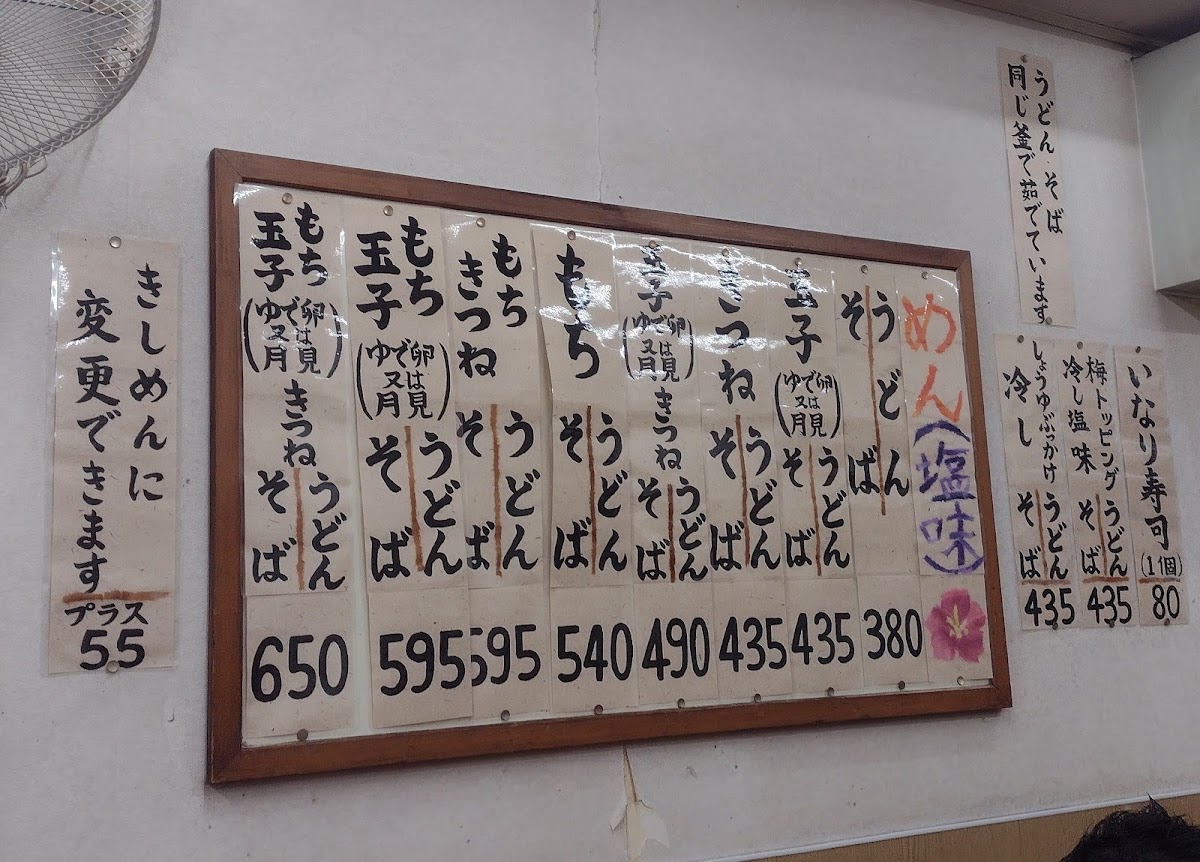 うどん・そば
同じ釜で茹でています
いなり寿司(1個)
80
梅トッピング
冷し塩味
うどん
そば
435
しょうゆぶっかけ
冷し
うどん
そば
435
めん(塩味)
うどん
そば
380
玉子(ゆで卵又は月見)
うどん
そば
435
きつね
うどん
そば
435
玉子(ゆで卵又は月見)きつね
うどん
そば
490
もち
うどん
そば
540
もち
きつね
うどん
そば
595
もち
玉子(ゆで卵又は月見)
うどん
そば
595
もち
玉子(ゆで卵又は月見)きつね
うどん
そば
650
きしめんに
変更できます
プラス
55